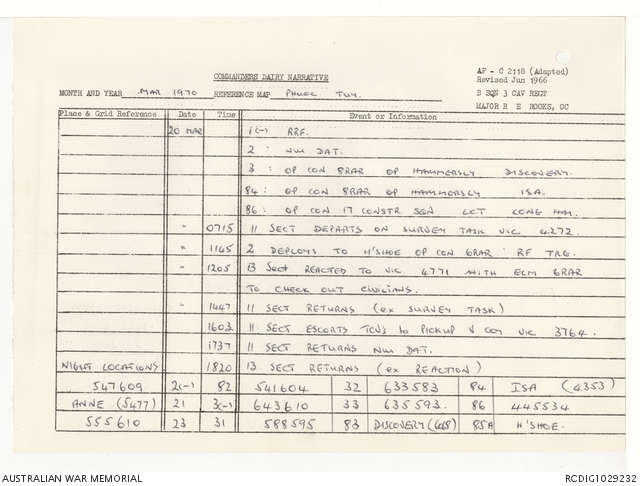 AF - C 2118 (Adapted)
Revised Jun 1966
COMMANDERS DAIRY NARRATIVE
MONTH AND YEAR MAR 1970 REFERENCE MAP PHUOC TUY. B SQN 3 CAV REGT
MAJOR R E ROOKS, OC
Place & Grid Reference Date Time Event or Information
20 MAR 1(-) RRF.
2 : NUI DAT.
3 : OP CON 8RAR OP HAMMERSLY DISCOVERY.
84 : OP CON 8RAR OP HAMMERSLY ISA.
86 : OP CON 17 CONSTR SQN LCT LONG HAI.
" 0715 11 SECT DEPARTS ON SURVEY TASK VIC 4272.
" 1145 2 DEPLOYS TO H'SHOE OP CON 6RAR : RF TRG.
" 1205 13 SECT REACTED TO VIC 4771 WITH ELM 6RAR
TO CHECK OUT CIVILIANS.
" 1447 11 SECT RETURNS (ex SURVEY TASK)
1603 11 SECT ESCORTS TCV'S to PICKUP V COY VIC 3764.
1737 11 SECT RETURNS NUI DAT.
NIGHT LOCATIONS 1820 13 SECT RETURNS (ex REACTION)
547609 2(-) 82 541604 32 633583 84 ISA (4353)
ANNE (5477) 21 3(-) 643610 33 635593. 86 445534
555610 23 31 588595 83 DISCOVERY 85A H'SHOE.
AUSTRALIAN WAR MEMORIAL RCDIG1029232